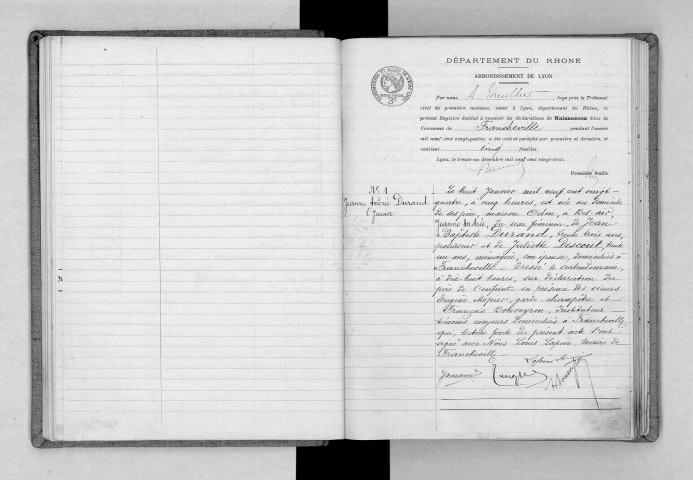 DÉPARTEMENT DU RHONE
ARRONDISSEMENT DE LYON
Par nous, Juge près le Tribunal
civil de première instance, séant à Lyon, département du Rhône, le
présent Registre destiné à recevoir les déclarations de Naissances dans la
Commune de Francheville pendant l'année
mil neuf cent vingt-quatre, a été coté et paraphé par première et dernière, et
contient cinq feuilles
Lyon, le trente-un décembre mil neuf cent vingt-trois.
Première feuille
No 1
Jeanne Andrée Durand
8 Janvier
Le huit Janvier mil neuf cent vingt-
quatre, à cinq heures, est née au domicile
de ses père, maison Odin, à Bel-air,
Jeanne Andrée, du sexe féminin, de Jean
Baptiste Durand, trente trois ans,
polisseur et de Juliette Descout, trente
un ans, ménagère, son épouse, domiciliés à
Francheville. Dressé le surlendemain,
à dix huit heures, sur déclaration du
père de l'enfant en présence des sieurs
Eugène garde-champêtre et
François Bouveyron, Instituteur
témoins majeurs domiciliés à Francheville
qui, lecture faite du présent acte l'ont
signé avec Nous Louis Lapine, maire de
Francheville
Durand